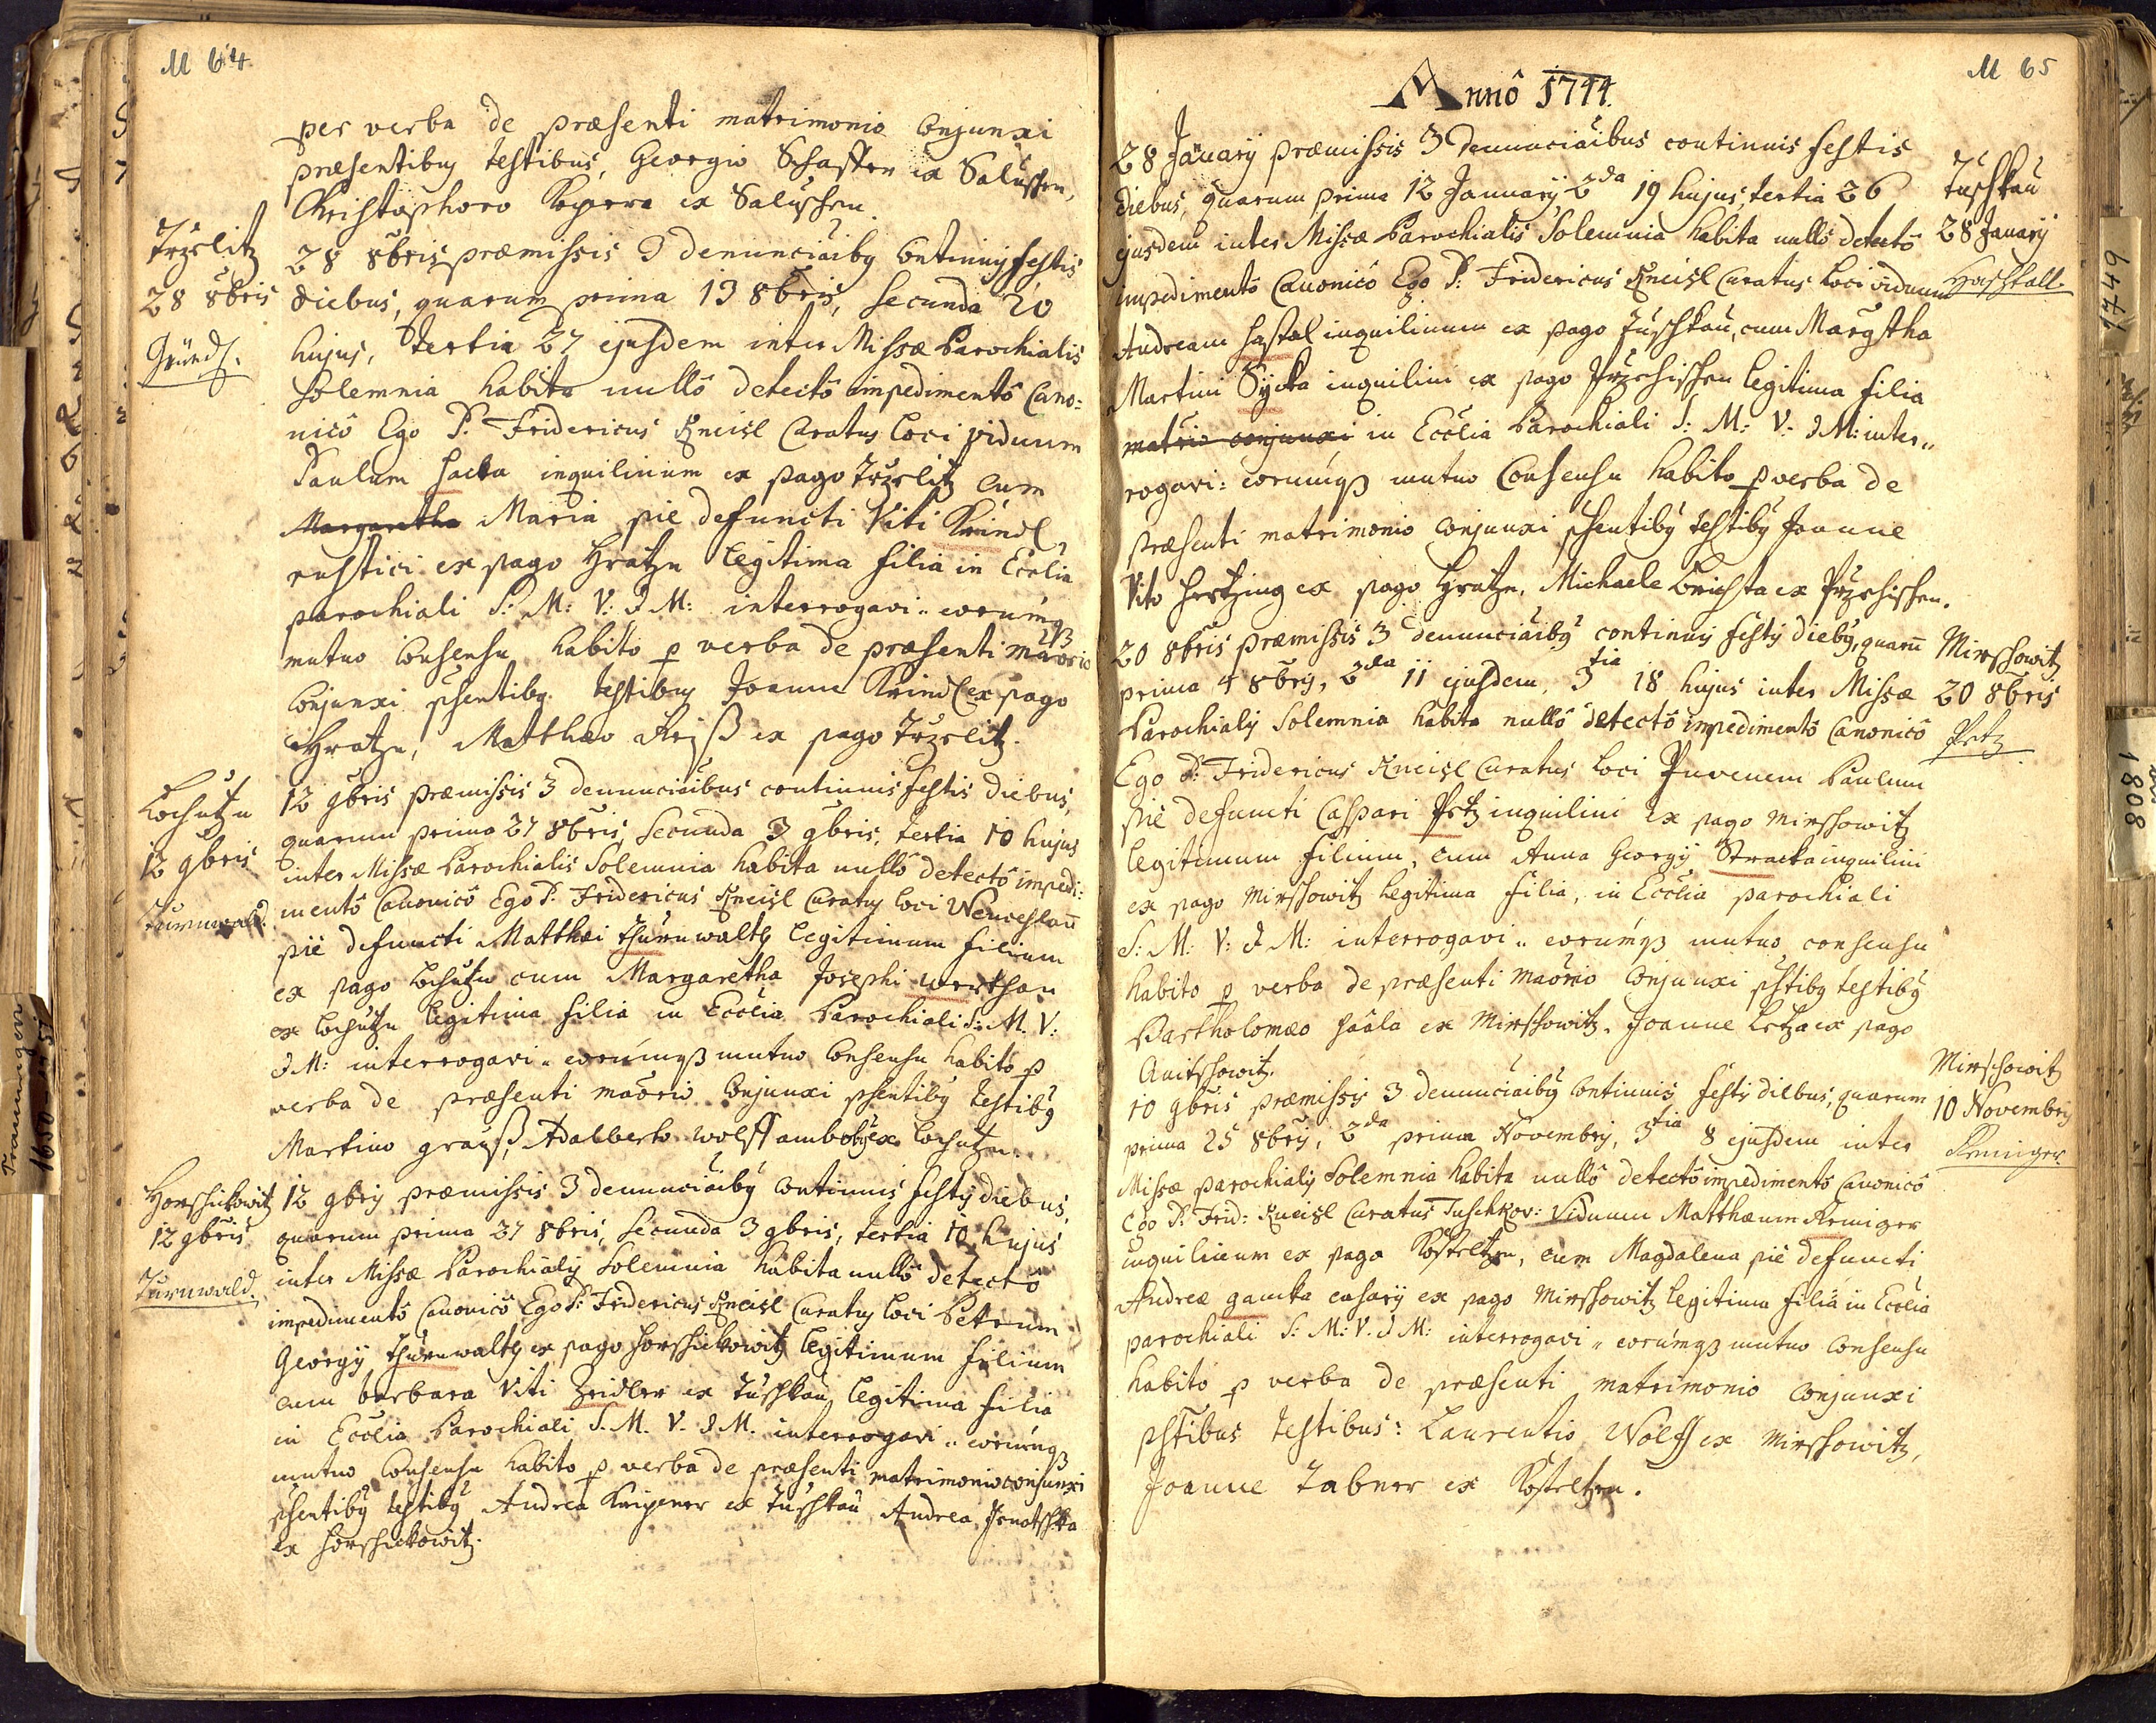 M 64
per verba de præsenti matrimonio Conjunxi
præsentibus testibus, Georgio Schaffer ex Saluschen,
Christophoro ex Saluschen
Trzelitz
28 8bris
28 8bris præmissis 3 denunciãibq Continuis festis
diebus, quarum prima 13 8bris, secunda 20
hujus, Tertia 27 ejusdem inter Missæ Parochialis
Solemnia habita nullô detectô impedimentô Cano:
nicô Ego P. Fridericus Kneisl Curatus loci viduum
Paulum Hacka inquilinum ex pago Trzelitz cum
Margaretha Maria pie defuncti Viti Kründl
rustici ex pago Hratzn legitima filia in Ecclia
parochiali S: M: V: I M: interrogavi " eorumqß
mutuo Consensu habito p verba de præsenti mãorio
Conjunxi psentibq testibus Joanne Kründl ex pago
Hratzn, Matthæo Kriß ex pago Trzelitz.
Lochutzn
12 9bris
Turnwald.
12 9bris præmissis 3 denunciãibus continuis festis diebus,
quarum prima 27 8bris, Secunda 3 9bris, tertia 10 hujus
inter Missæ Parochialis Solemnia habita nullô detectô impedi:
mentô Canonicô Ego P. Fridericus Kneisl Curatus loci Wenceslaũ
pie defuncti Matthæi Thurnwaltz legitimum filium
ex pago Lochutzn cum Margaretha Josephi Werksan
ex Lochutzn legitima filia in Ecclia Parochiali S: M. V:
I M: interrogavi " eorumqß mutuo Consensu habito p
verba de præsenti mãorio Conjunxi psentibq testibq
Martino grauß, Adalberto Wolff ambobus ex Lochutzn.
Horschikowitz
12 9bris
Turnwald.
12 9bris præmissis 3 denunciãibq Continuis festis diebus,
quarum prima 27 8bris, Secunda 3 9bris, tertia 10 hujus
inter Missæ Parochialis Solemnia habita nullô detectô
impedimentô Canonicô Ego P. Fridericus Kneisl Curatus loci Petrum
Georgÿ Thurnwaltz ex pago Horschikowitz legitimum filium
cum barbara Viti Zeidler ex Tuschkau legitima filia
in Ecclia Parochiali S. M. V. I M. interrogavi " eorumqß
mutuo Consensu habito p verba de præsenti matrimonio conjunxi
psentibq testibq Andrea Knipener ex Tuschkau Andrea Jenotschka
ex Horschikowitz.
M 65
Annô 1744.
28 Januarÿ præmissis 3 denunciãibus continuis festis
diebus, quarum prima 12 Januarÿ, 2da 19 hujus, tertia 26
ejusdem inter Missæ Parochialis Solemnia habita nullô detectô
impedimentô Canonicô Ego P: Fridericus Kneisl Curatus loci viduum
Andream Hastal inquilinum ex pago Tuschkau, cum Margetha
Martini Sÿcka inquilini ex pago Przehischen legitima filia
matrio conjunxi in Ecclia Parochiali S: M: V: I M: inter"
rogavi: eorumqß mutuo Consensu habito p verba de
præsenti matrimonio Conjunxi psentibq testibq Joanne
Vito Hertzing ex pago Hratzn, Michaele Brichta ex Przehischen.
Tuschkau
28 Januarÿ
Haschtall.
20 8bris præmissis 3 denunciãibq continuis festis diebq, quarũ
prima 4 8bris, 2da 11 ejusdem, 3tia 18 hujus inter Missæ
Parochialis Solemnia habita nullô detectô impedimentô Canonicô
Ego P: Fridericus Kneisl Curatus loci Juvenem Paulum
pie defuncti Caspari Petz inquilini ex pago Mirschowitz
legitimum filium, cum Anna Georgÿ Stracka inquilini
ex pago Mirschowitz legitima filia, in Ecclia parochiali
S: M: V: I M: interrogavi " eorumqß mutuo consensu
habito p verba de præsenti mãorio Conjunxi pstibq testibq
Bartholomæo Haala ex Mirschowitz, Joanne Letza ex pago
Auitschowitz.
Mirschowitz
20 8bris
Petz
10 9bris præmissis 3 denunciãibq Continuis festis diebus, quarum
prima 25 8bris, 2da prima Novembris, 3tia 8 ejusdem inter
Missæ parochialis Solemnia habita nullô detectô impedimentô Canonicô
Ego P. Frid: Kneisl Curatus Tuschkov: Viduum Matthæum Reiniger
inquilinum ex pago Kosteltzn, cum Magdalena pie defuncti
Andreæ gancka casarÿ ex pago Mirschowitz legitima filia in Ecclia
parochiali S: M: V. I M: interrogavi " eorumqß mutuo Consensu
habito p verba de præsenti matrimonio Conjunxi
pstibus testibus: Laurentio Wolff ex Mirschowitz,
Joanne Tabner ex Kosteltzn.
Mirschowitz
10 Novembris
Reiniger
Trauungen
1749
1808